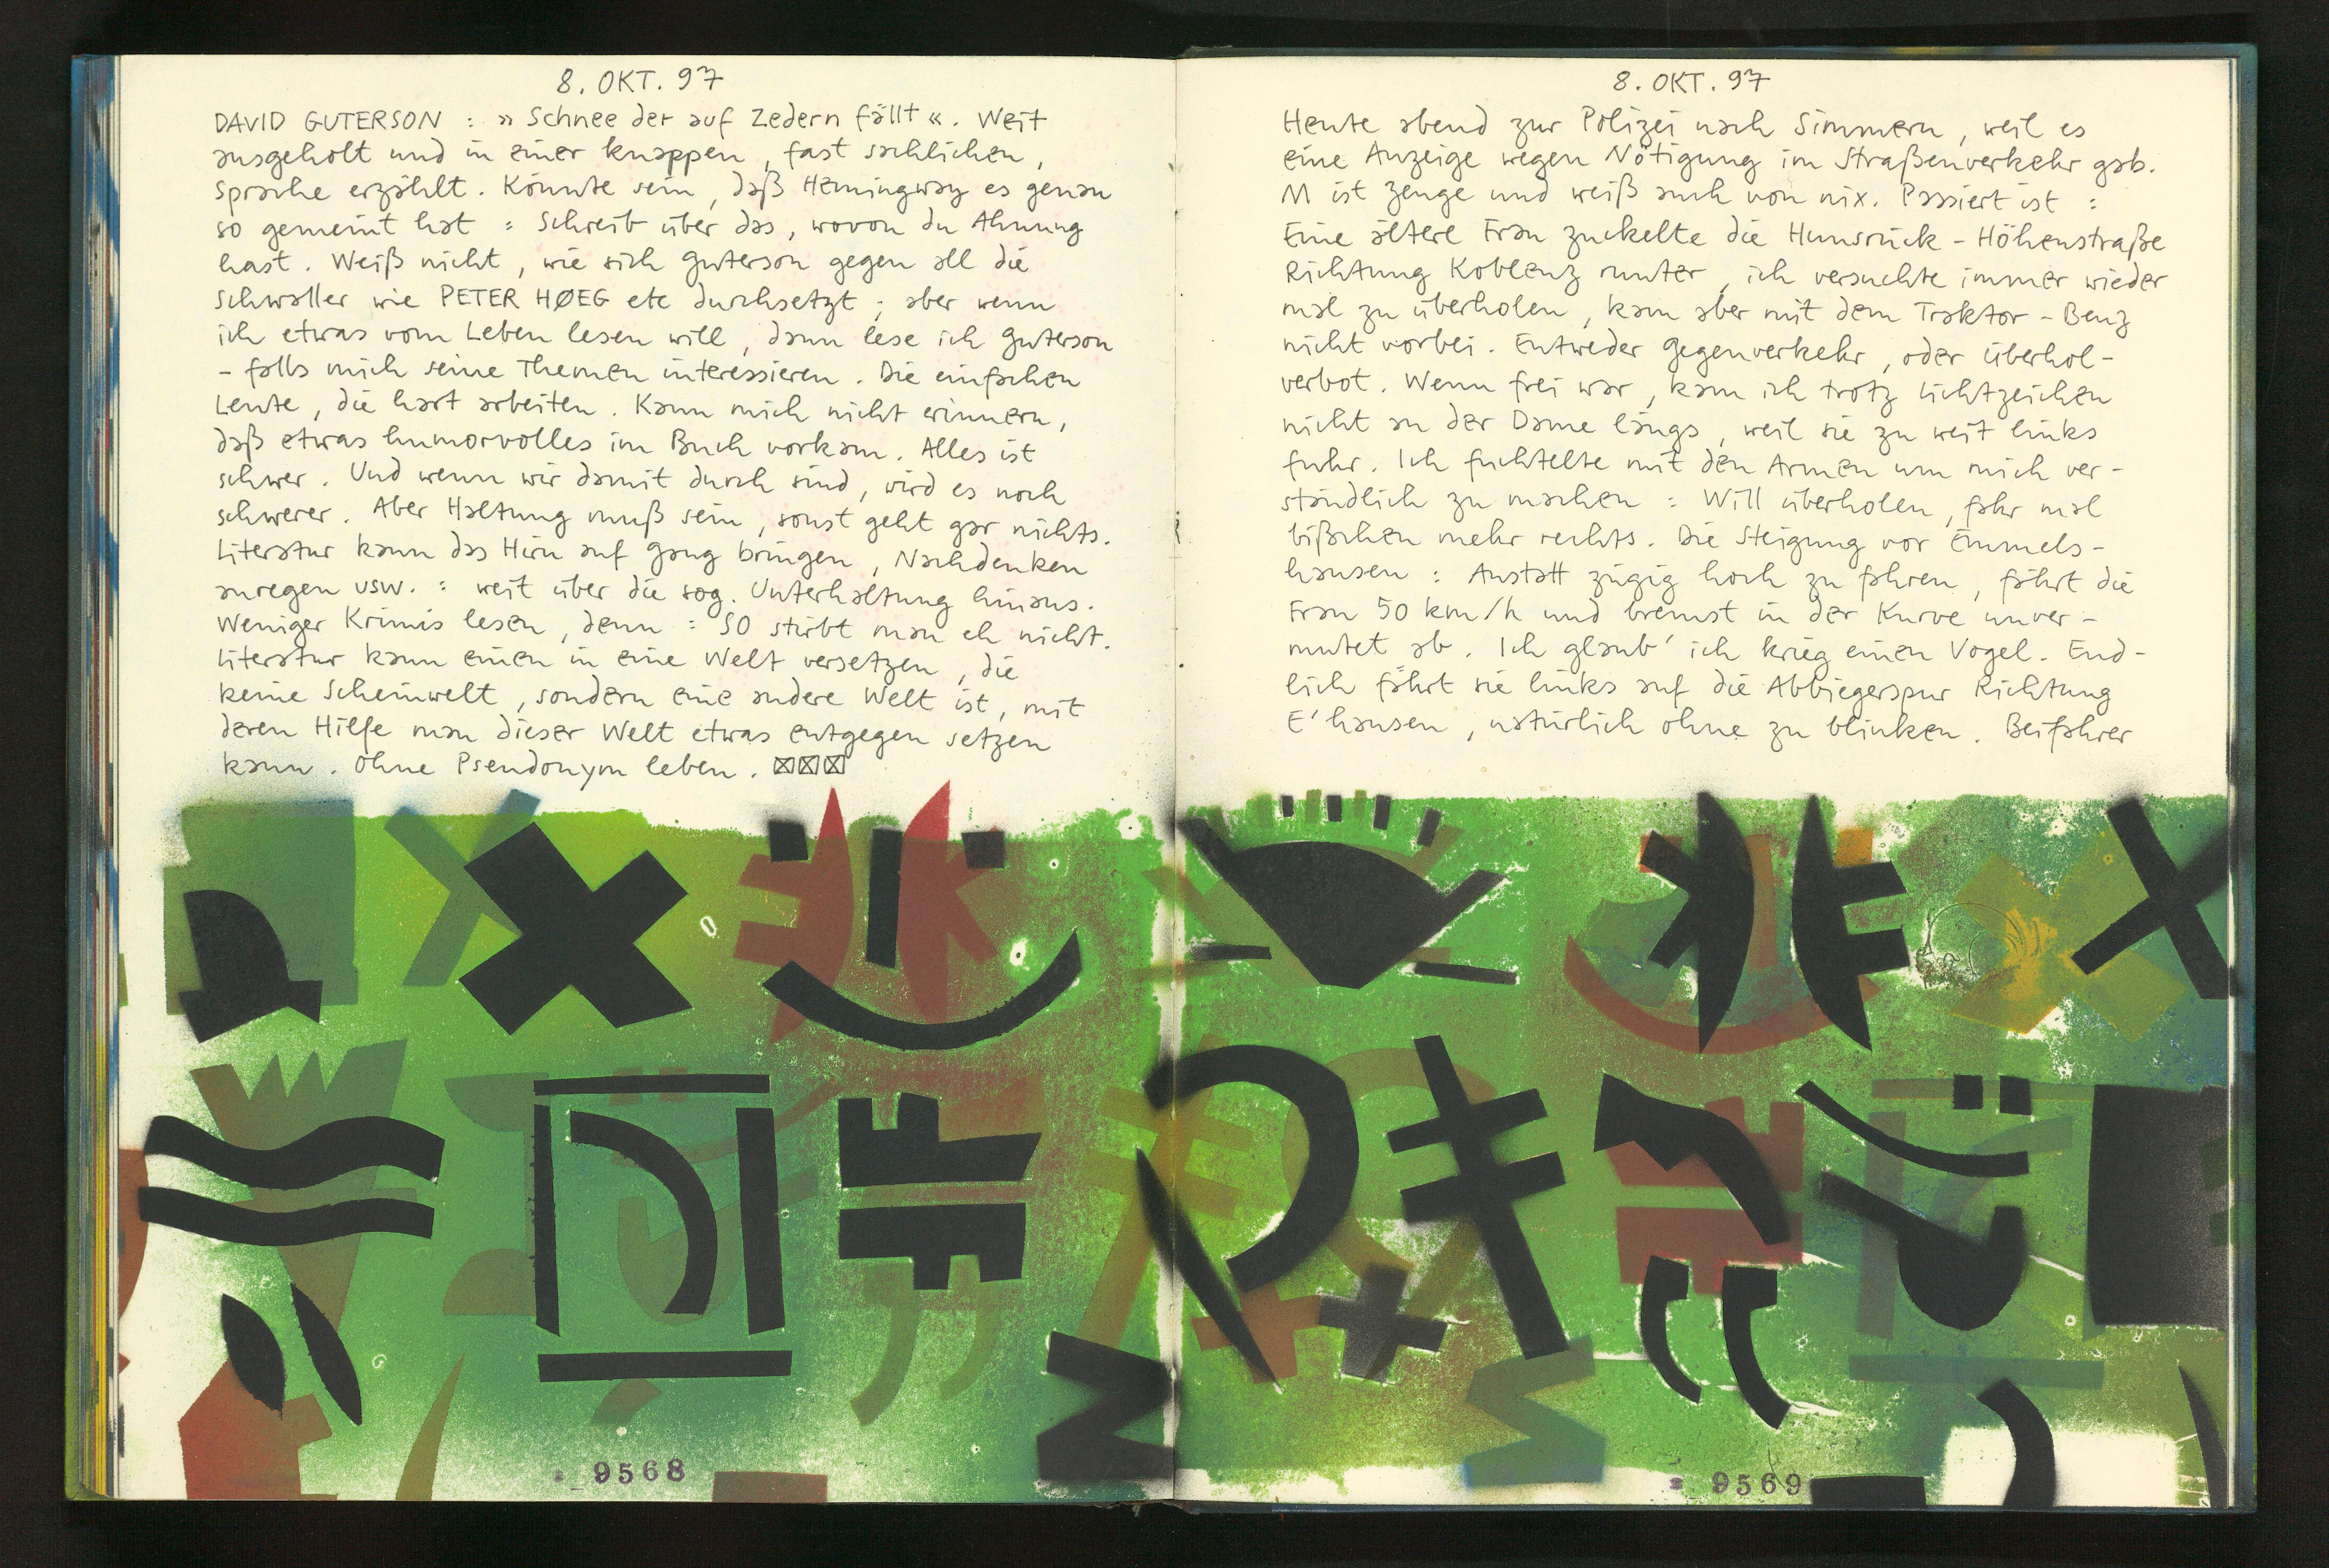 8. OKT. 97
DAVID GUTERSON : » Schnee der auf Zedern fällt «. Weit
ausgeholt und in einer knappen, fast sachlichen,
Sprache erzählt. Könnte sein, daß Hemingway es genau
so gemeint hat : Schreib über das, wovon du Ahnung
hast. Weiß nicht, wie sich Guterson gegen all die
Schwaller wie PETER HØEG etc durchsetzt ; aber wenn
ich etwas vom Leben lesen will, dann lese ich Guterson
- falls mich seine Themen interessieren. Die einfachen
Leute, die hart arbeiten. Kann mich nicht erinnern,
daß etwas humorvolles im Buch vorkam. Alles ist
schwer. Und wenn wir damit durch sind, wird es noch
schwerer. Aber Haltung muß sein, sonst geht gar nichts.
Literatur kann das Hirn auf Gang bringen, Nachdenken
anregen usw. : weit über die sog. Unterhaltung hinaus.
Weniger Krimis lesen, denn : SO stirbt man eh nicht.
Literatur kann einen in eine Welt versetzen, die
keine Scheinwelt, sondern eine andere Welt ist, mit
deren Hilfe man dieser Welt etwas entgegen setzen
kann. Ohne Pseudonym leben. ☒☒☒
9568
8. OKT. 97
Heute abend zur Polizei nach Simmern, weil es
eine Anzeige wegen Nötigung im Straßenverkehr gab.
M ist Zeuge und weiß auch von nix. Passiert ist :
Eine ältere Frau zuckelte die Hunsrück-Höhenstraße
Richtung Koblenz runter, ich versuchte immer wieder
mal zu überholen, kam aber mit dem Traktor-Benz
nicht vorbei. Entweder Gegenverkehr, oder Überhol-
verbot. Wenn frei war, kam ich trotz Lichtzeichen
nicht an der Dame längs, weil sie zu weit links
fuhr. Ich fuchtelte mit den Armen um mich ver-
ständlich zu machen : Will überholen, fahr mal
bißchen mehr rechts. Die Steigung vor Emmels-
hausen : Anstatt zügig hoch zu fahren, fährt die
Frau 50 km/h und bremst in der Kurve unver-
mutet ab. Ich glaub' ich krieg einen Vogel. End-
lich fährt sie links auf die Abbiegerspur Richtung
E'hausen, natürlich ohne zu blinken. Beifahrer
9569